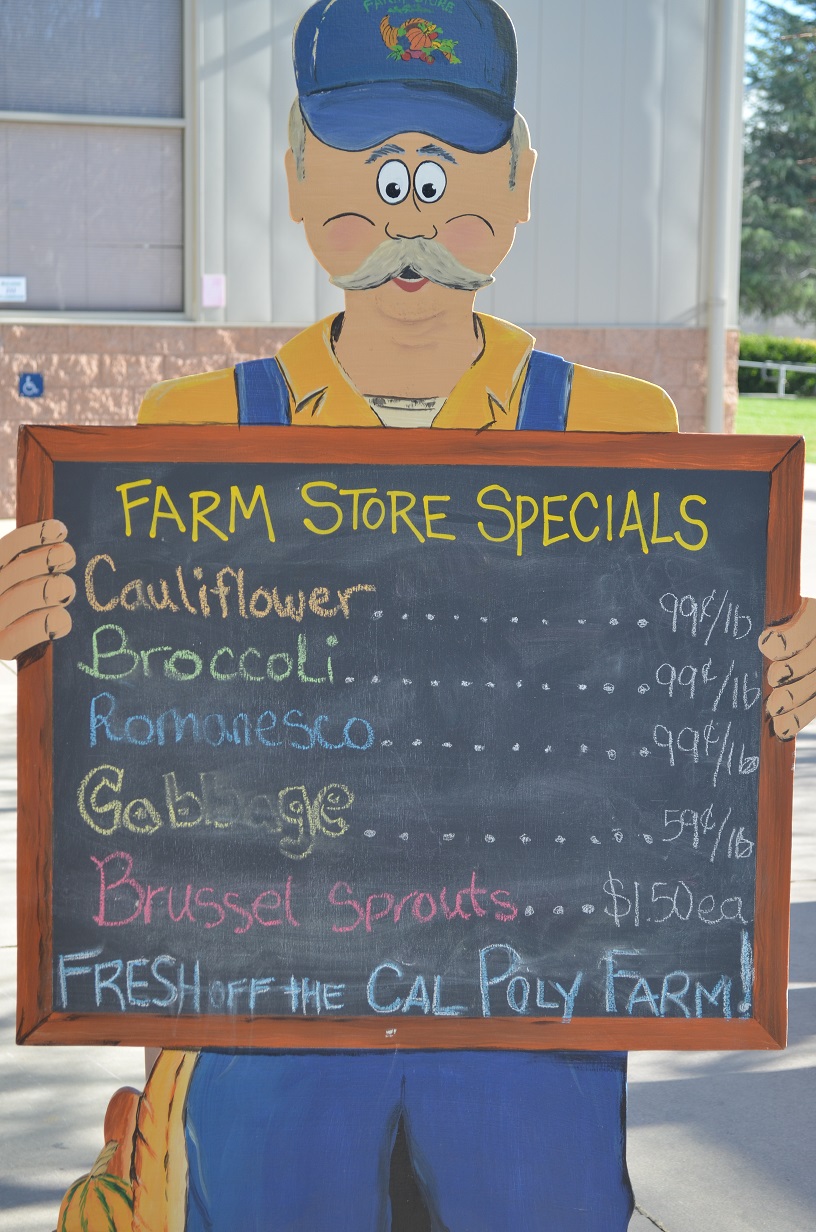 FARM STORE
FARM STORE SPECIALS
Cauliflower.........99¢/lb
Broccoli..........99¢/lb
Romanesco.........99¢/lb
Gabbage.........59¢/lb
Brussel sprouts....$1.50ea
FRESH OFF THE CAL POLY FARM!